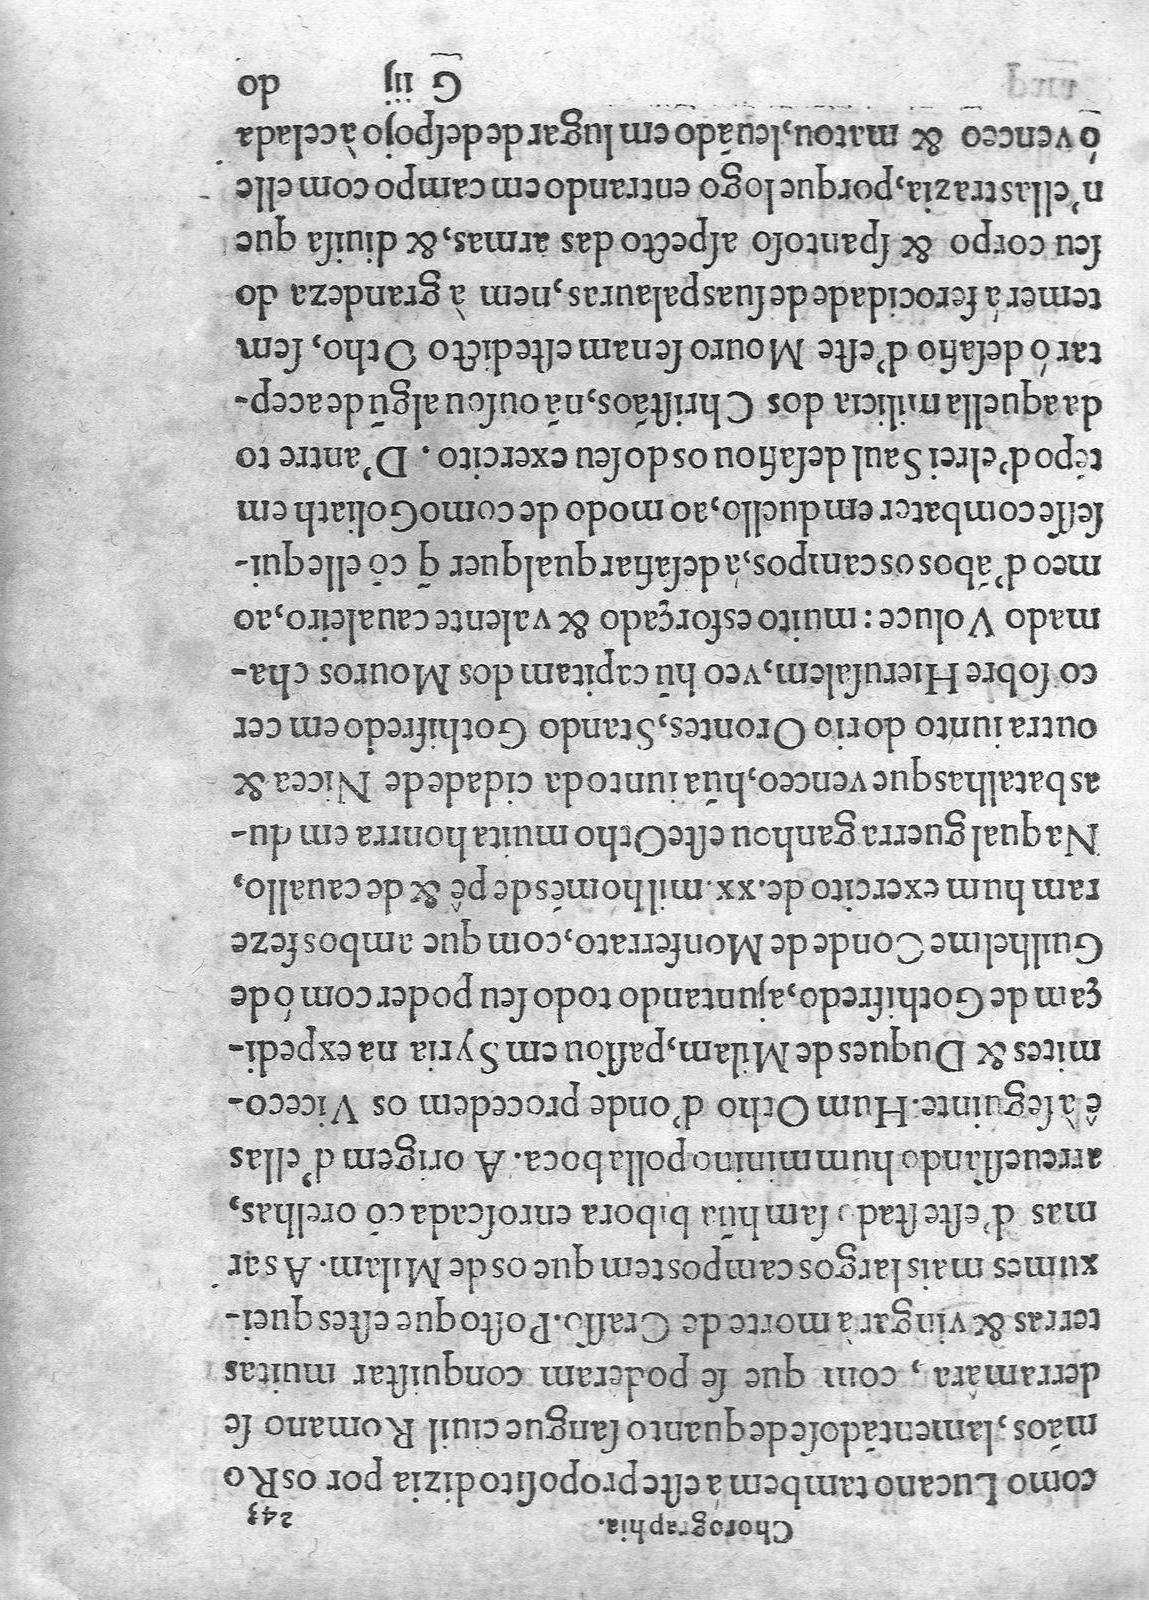 Chorographia. 243
como Lucano tambem a este proposito dizia por os Ro
mãos, lamentãdose de quanto sangue ciuil Romano se
derramára, com que se poderam conquistar muitas
terras & vingar à morte de Crasso. Posto que estes quei-
xumes mais largos campos tem que os de Milam. As ar
mas d'este stado sam hũa bibora enroscada cõ orelhas,
arreuessando hum minino polla boca. A origem d'ellas
ê à seguinte. Hum Otho d'onde procedem os Viceco-
mites & Duques de Milam, passou em Syria na expedi-
çam de Gothifredo, ajuntando todo seu poder com ó de
Guilhelme Conde de Monferrato, com que ambos feze
ram hum exercito de .xx. mil homẽs de pê & de cauallo,
Na qual guerra ganhou este Otho muita honrra em du-
as batalhas que venceo, hũa iunto da cidade de Nicea &
outra iunto do rio Orontes, Stando Gothifredo em cer
co sobre Hierusalem, veo hũ capitam dos Mouros cha-
mado Voluce: muito esforçado & valente caualeiro, ao
meo d'ãbos os campos, à desafiar qualquer q̃ cõ elle qui-
sesse combater em duello, ao modo de como Goliath em
tẽpo d'elrei Saul desafiou os do seu exercito. D'antre to
da aquella milicia dos Christãos, nã ousou algũ de acep-
tar ó desafio d'este Mouro senam este dicto Otho, sem
temer á ferocidade de suas palauras, nem à grandeza do
seu corpo & spantoso aspecto das armas, & diuisa que
n'ellas trazia, porque logo entrando em campo com elle
ó venceo & matou, leuãdo em lugar de despojo à celada
G iij do